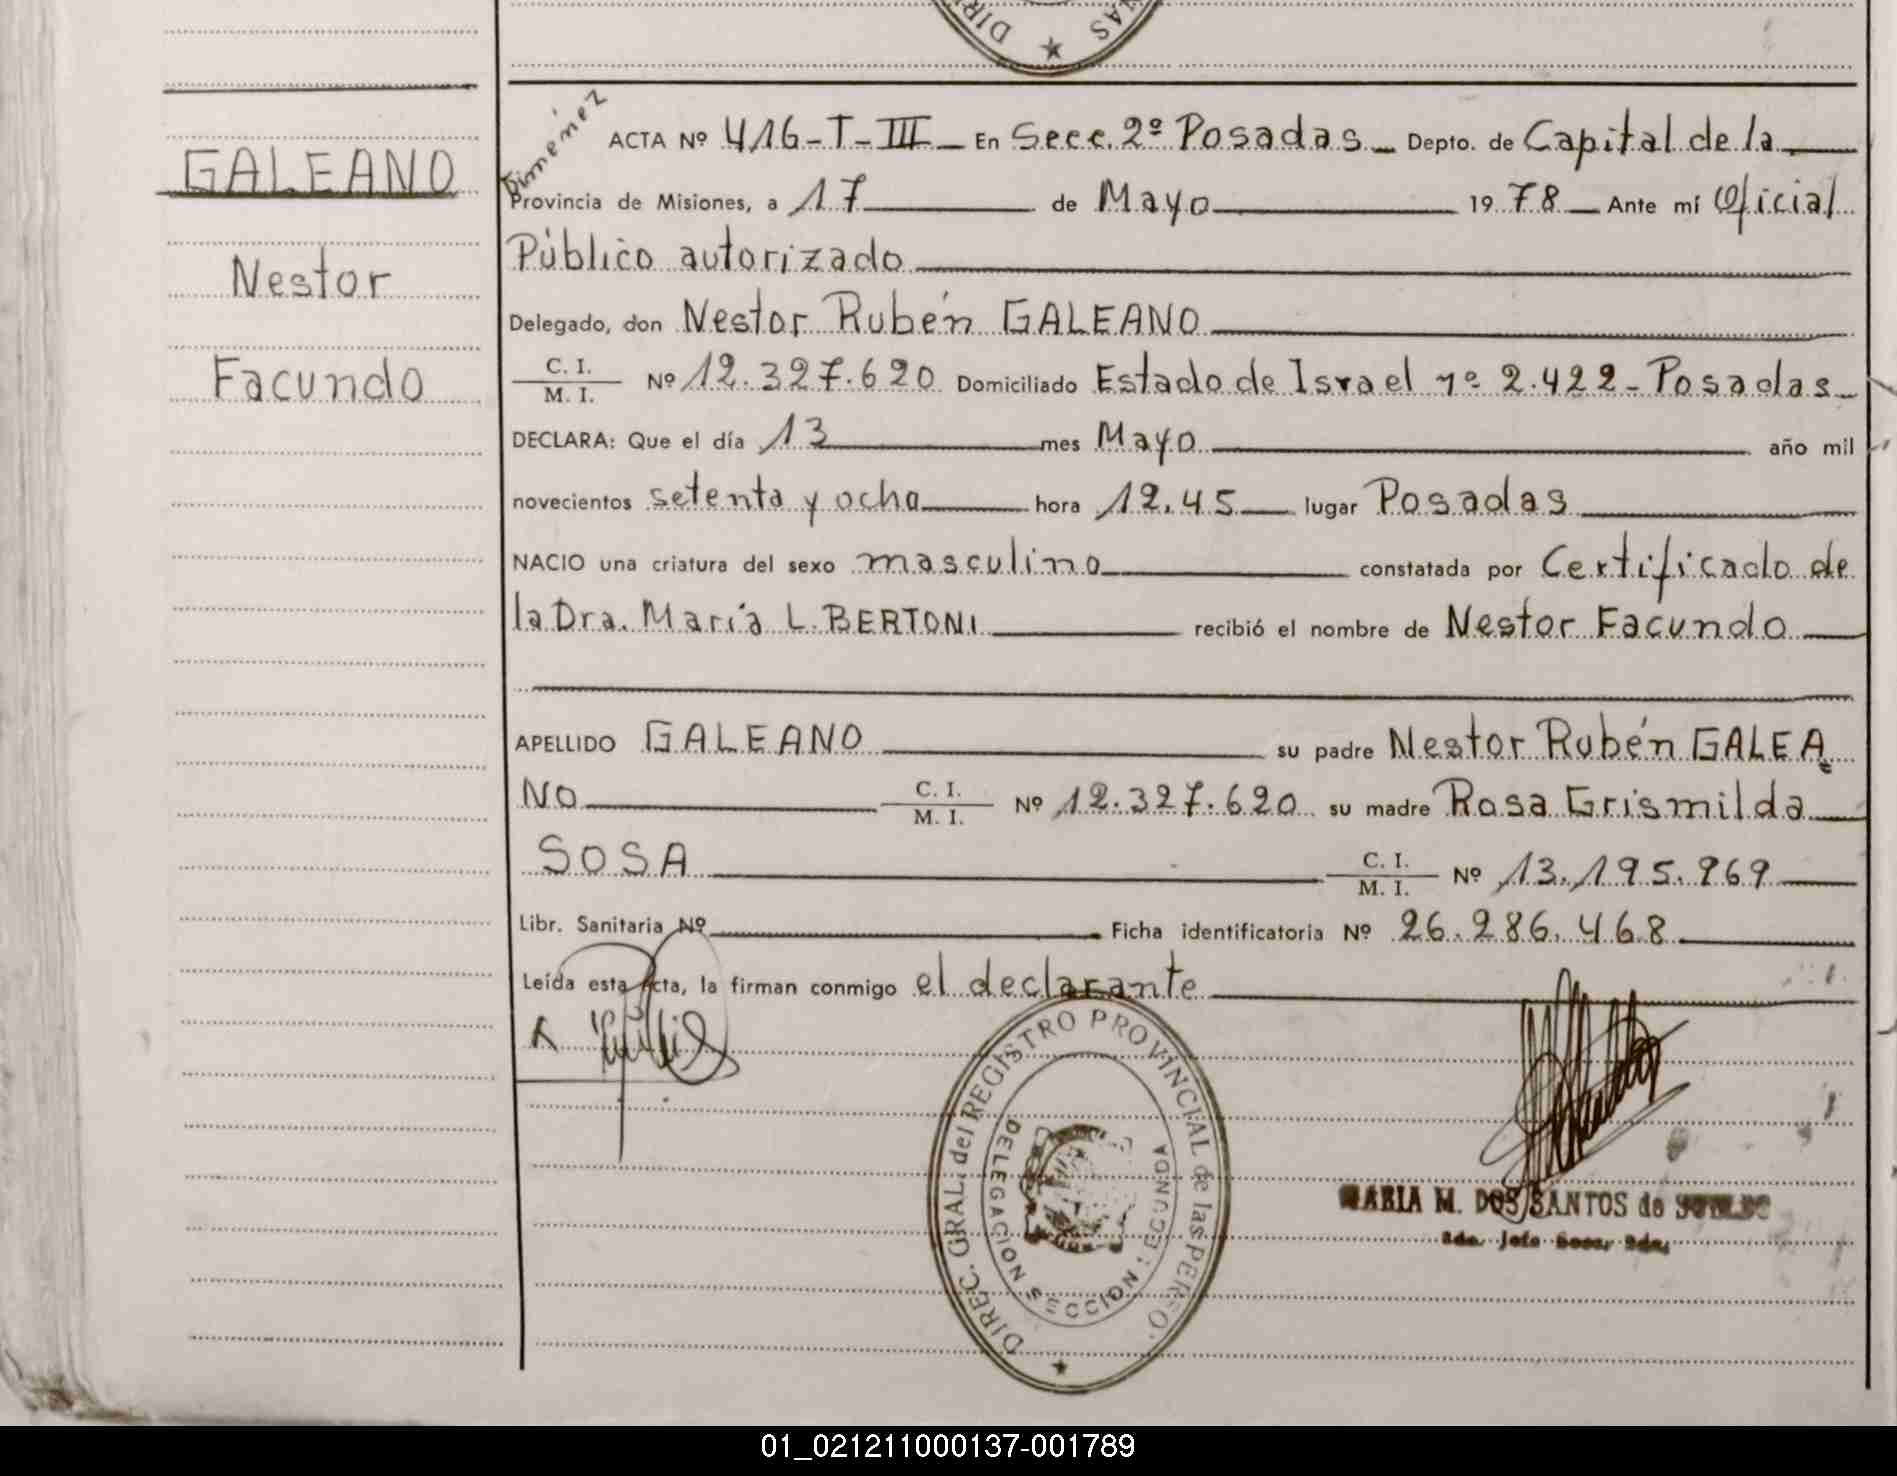 DIRE NAS
Jimenez
GALEANO
Nestor
Facundo
ACTA Nº 416-T-III En Secc. 2º Posadas Depto. de Capital de la
Provincia de Misiones, a 17 de Mayo 1978 Ante mí Oficial
Público autorizado
Delegado, don Nestor Rubén GALEANO
C. I. / M. I. Nº 12.327.620 Domiciliado Estado de Israel nº 2.422-Posadas
DECLARA: Que el día 13 mes Mayo año mil
novecientos setenta y ocho hora 12.45 lugar Posadas
NACIO una criatura del sexo masculino constatada por Certificado de
la Dra. María L. BERTONI recibió el nombre de Nestor Facundo
APELLIDO GALEANO su padre Nestor Rubén GALEA
NO C. I. / M. I. Nº 12.327.620 su madre Rosa Grismilda
SOSA C. I. / M. I. Nº 13.195.969
Libr. Sanitaria Nº Ficha identificatoria Nº 26.286.468
Leída esta acta, la firman conmigo el declarante
DIREC. GRAL. del REGISTRO PROVINCIAL de las PERSO
DELEGACION SECCION SEGUNDA
MARIA M. DOS SANTOS de
01_021211000137-001789